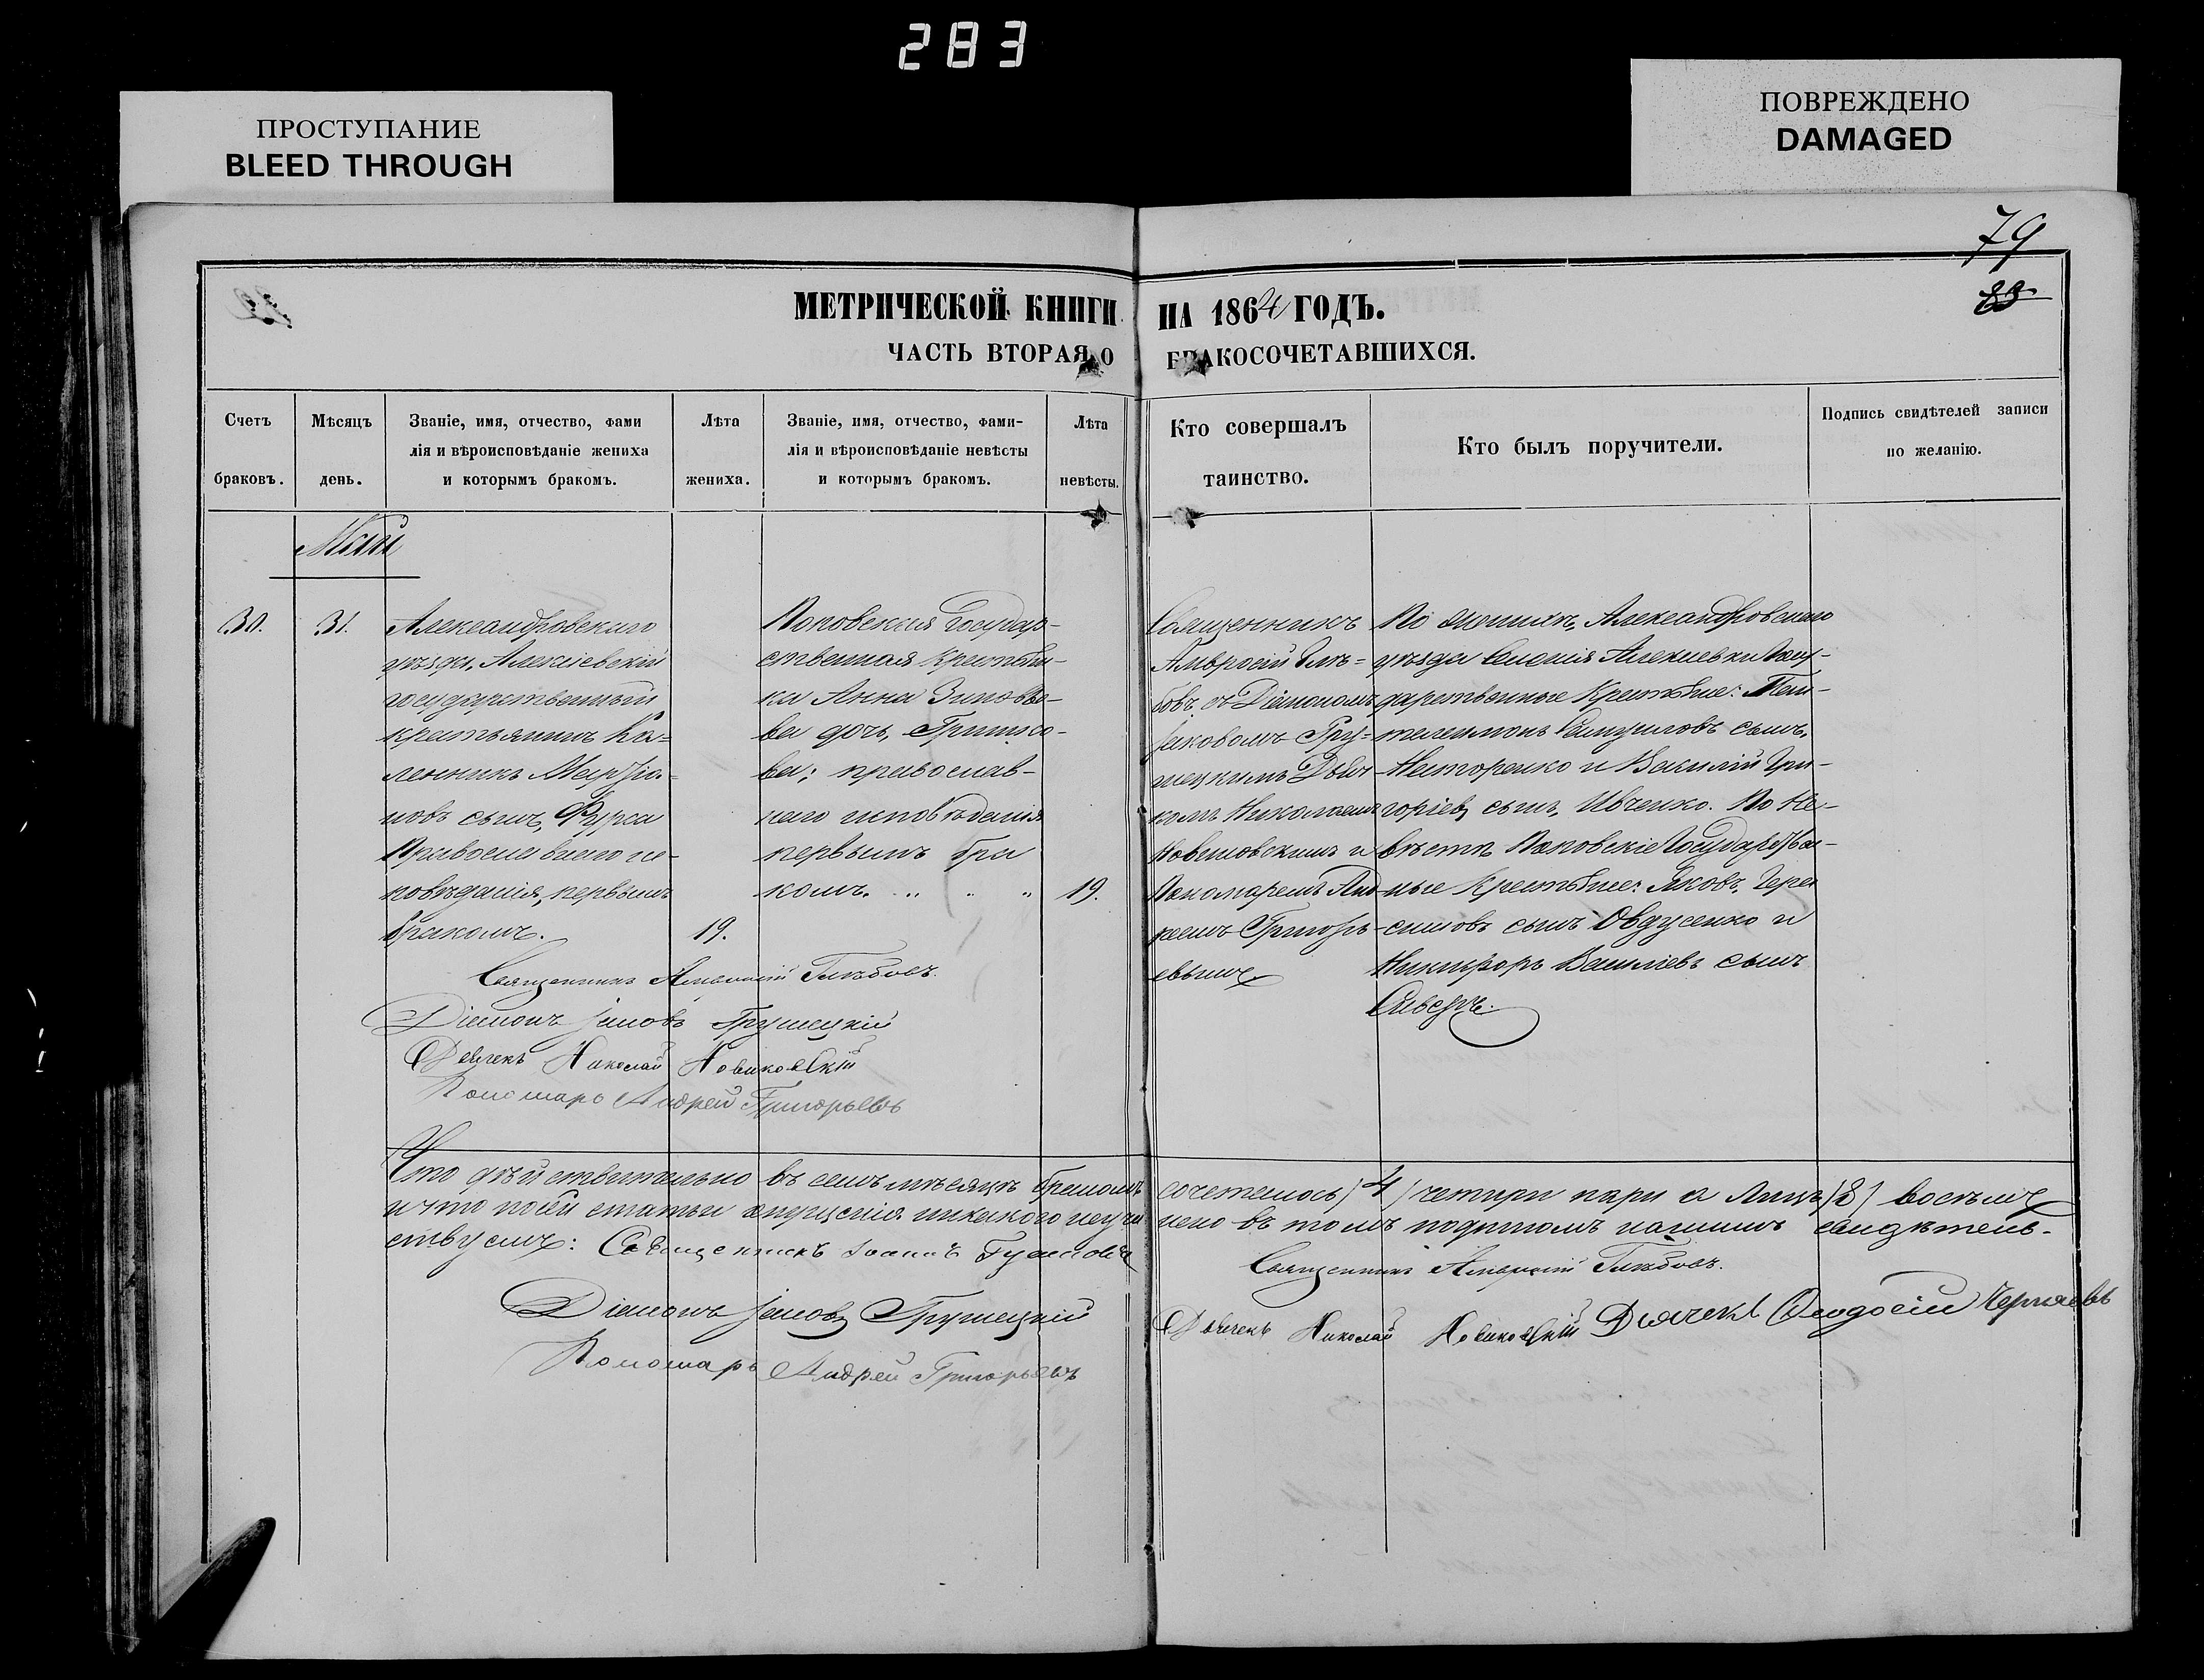 283
ПРОСТУПАНИЕ
BLEED THROUGH
ПОВРЕЖДЕНО
DAMAGED
79
83
МЕТРИЧЕСКОЙ КНИГИ НА 1864 ГОДЪ.
ЧАСТЬ ВТОРАЯ О БРАКОСОЧЕТАВШИХСЯ.
Счетъ
браковъ.
Мѣсяцъ
день.
Званіе, имя, отчество, фами
лія и вѣроисповѣданіе жениха
и которымъ бракомъ.
Лѣта
жениха.
Званіе, имя, отчество, фами-
лія и вѣроисповѣданіе невѣсты
и которымъ бракомъ.
Лѣта
невѣсты.
Кто совершалъ
таинство.
Кто былъ поручители.
Подпись свидѣтелей записи
по желанію.
Май
30.
31.
Александровскаго
уѣзда, Алексіевскій
государственный
крестьянинъ Ка=
ленникъ
новъ сынъ, Фурса
Православнаго ис-
повѣданія, первымъ
бракомъ.
19.
Поповская Государ-
ственная крестьян-
ка Анна Зиновье-
ва дочь,
ва; православ-
наго исповѣданія
первымъ бра
комъ.
19.
Священникъ
Амвросій Глѣ=
бовъ съ Діакономъ
Іаковомъ Гру=
шецкимъ Дьяч
комъ Николаемъ
Новиковскимъ и
Пономаремъ Анд
реемъ Григорь-
евымъ
По женихѣ, Александровскаго
уѣзда Селенія Алексіевки Госу-
дарственные Крестьяне: Пан-
телеимонъ Самуиловъ сынъ,
Нагоренко и Василій Гри-
горіевъ сынъ, Ивченко. По Не-
вѣстѣ Поповскіе Государствен-
ные Крестьяне: Яковъ, Гера
симовъ сынъ Овдусенко и
Никифоръ Василіевъ сынъ
Священникъ Амвросій Глѣбовъ.
Діаконъ Іаковъ Грушецкій
Дьячекъ Николай Новиковскій
Пономарь Андрей Григорьевъ
Что дѣйствительно въ семъ мѣсяцѣ бракомъ сочеталось) 4 (четыри пары а лицъ) 8) восемъ
и что по сей статьи опущенія никакого неучи нено въ томъ подписомъ нашимъ свидѣтель-
ствуемъ: Священникъ Іоаннъ
Священникъ Амвросій Глѣбовъ.
Діаконъ Іаковъ Грушецкій
Дьячекъ Николай Новиковскій Дьячекъ Феодосій Черняевъ
Пономарь Андрей Григорьевъ